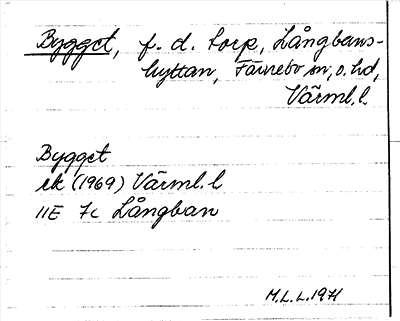 Bygget, f. d. torp, Långbans-
hyttan, Färnebo sn, o. hd,
Värml. l.
Bygget
ek (1969) Värml. l
11E 7c Långban
M.L.L. 1971